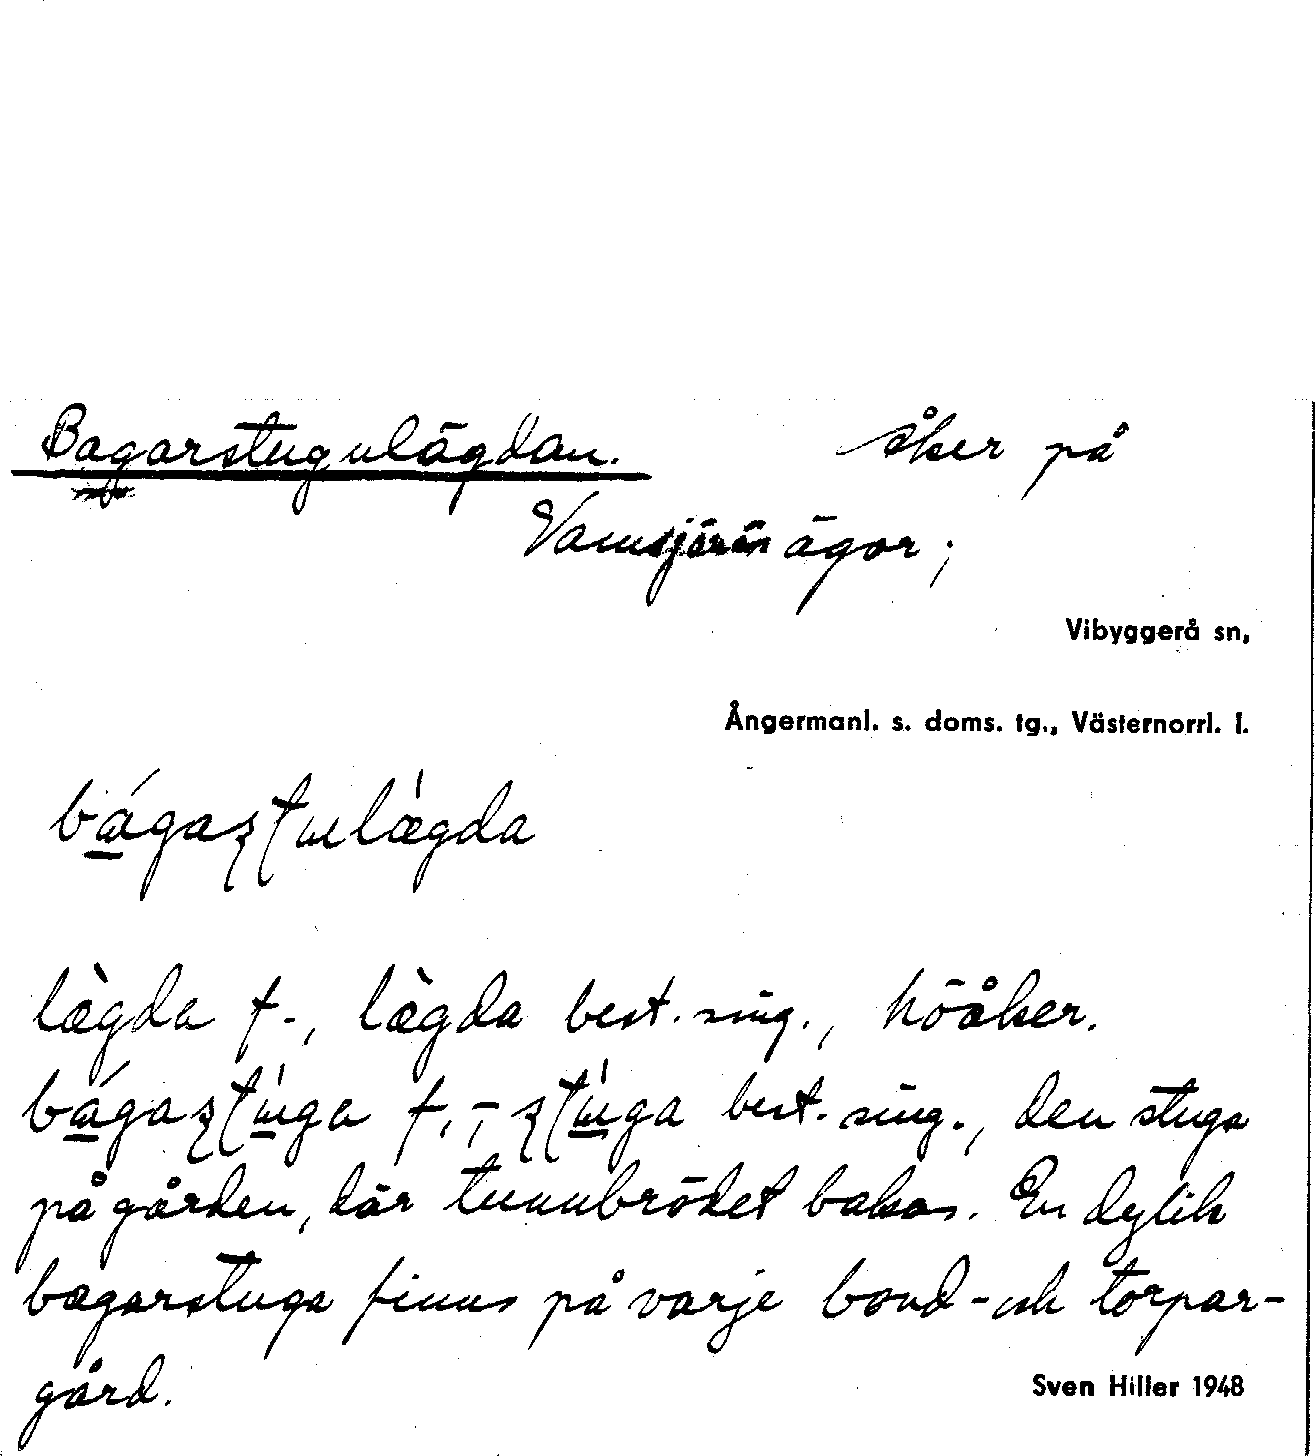 Bagarstugulägdan. åker på
Vamsjöns ägor;
Vibyggerå sn,
Ångermanl. s. doms. tg., Västernorrl. l.
lægda f., lægda best. sing., höåker.
best. sing., den stuga
på gården, där tunnbrödet bakas. En dylik
bagarstuga finns på varje bond- och torpar-
gård.
Sven Hiller 1948